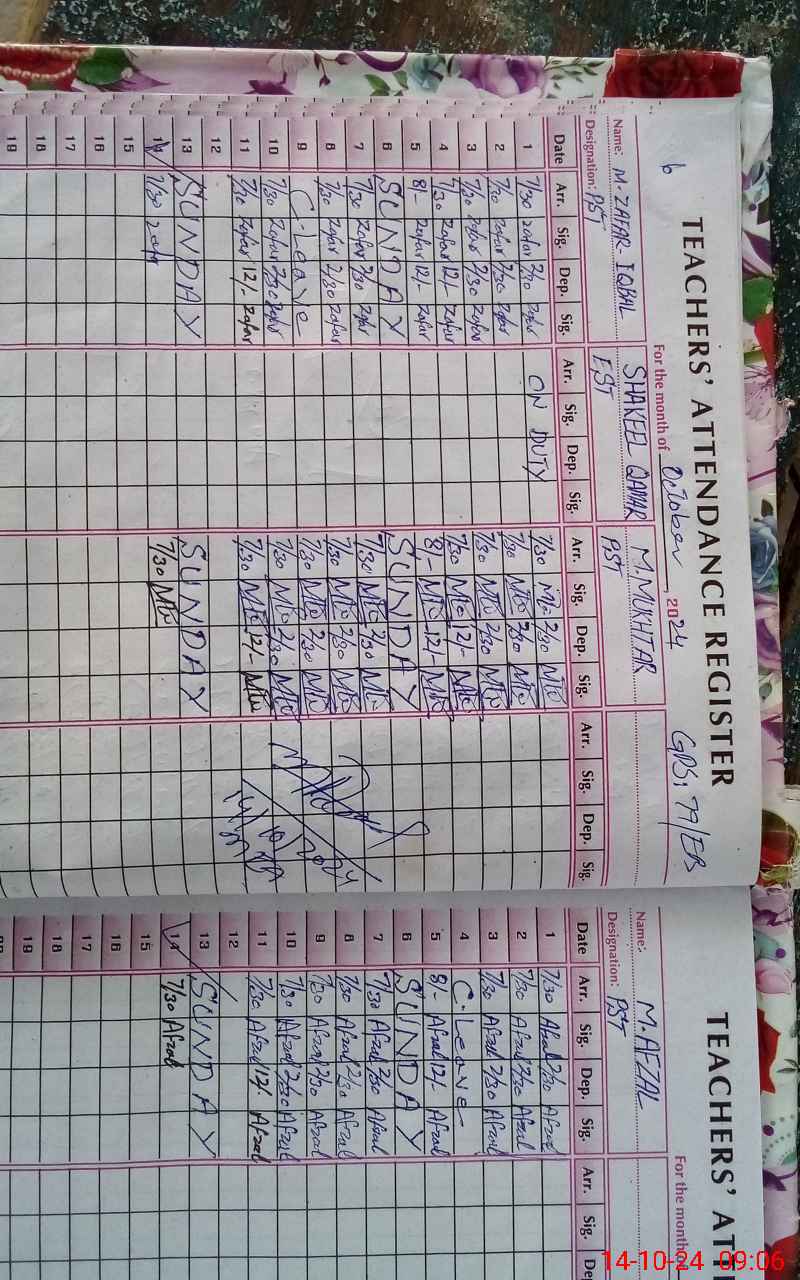 6
TEACHERS' ATTENDANCE REGISTER
For the month of October, 2024
GPS, 77/EB
Name: M. ZAFAR IQBAL
SHAKEEL QAMAR
M. MUKHTAR
Designation: PST
EST
PST
Date Arr. Sig. Dep. Sig. Arr. Sig. Dep. Sig. Arr. Sig. Dep. Sig. Arr. Sig. Dep. Sig.
1 7/30 Zafar 2/30 Zafar ON DUTY 7/30 2/30
2 7/30 Zafar 2/30 Zafar 7/30 2/30
3 7/30 Zafar 2/30 Zafar 7/30 2/30
4 7/30 Zafar 12/- Zafar 7/30 12/-
5 8/- Zafar 12/- Zafar 8/- 12/-
6 SUNDAY SUNDAY
7 7/30 Zafar 2/30 Zafar 7/30 2/30
8 7/30 Zafar 2/30 Zafar 7/30 2/30
9 C-Leave 7/30 2/30
10 7/30 Zafar 2/30 Zafar 7/30 2/30
11 7/30 Zafar 12/- Zafar 7/30 12/-
12
13 SUNDAY SUNDAY
14 7/30 Zafar 7/30
15
16
17
18
19
TEACHERS' ATT
For the month
Name: M. AFZAL
Designation: PST
Date Arr. Sig. Dep. Sig. Arr. Sig. De
1 7/30 Afzal 2/30 Afzal
2 7/30 Afzal 2/30 Afzal
3 7/30 Afzal 2/30 Afzal
4 C-Leave
5 8/- Afzal 12/- Afzal
6 SUNDAY
7 7/30 Afzal 2/30 Afzal
8 7/30 Afzal 2/30 Afzal
9 7/30 Afzal 2/30 Afzal
10 7/30 Afzal 2/30 Afzal
11 7/30 Afzal 12/- Afzal
12
13 SUNDAY
14 7/30 Afzal
15
16
17
18
19
14-10-24 09:06